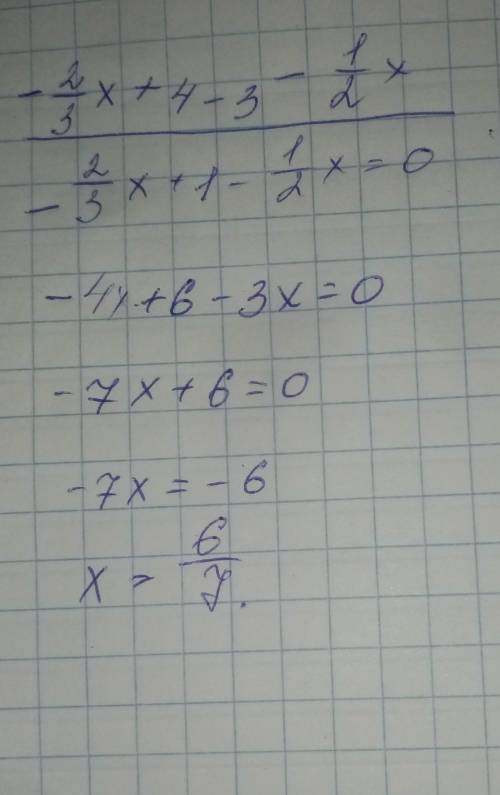 -2/3x + 4 - 3 - 1/2x
-2/3x + 1 - 1/2x = 0
-4x + 6 - 3x = 0
-7x + 6 = 0
-7x = -6
x = 6/7.